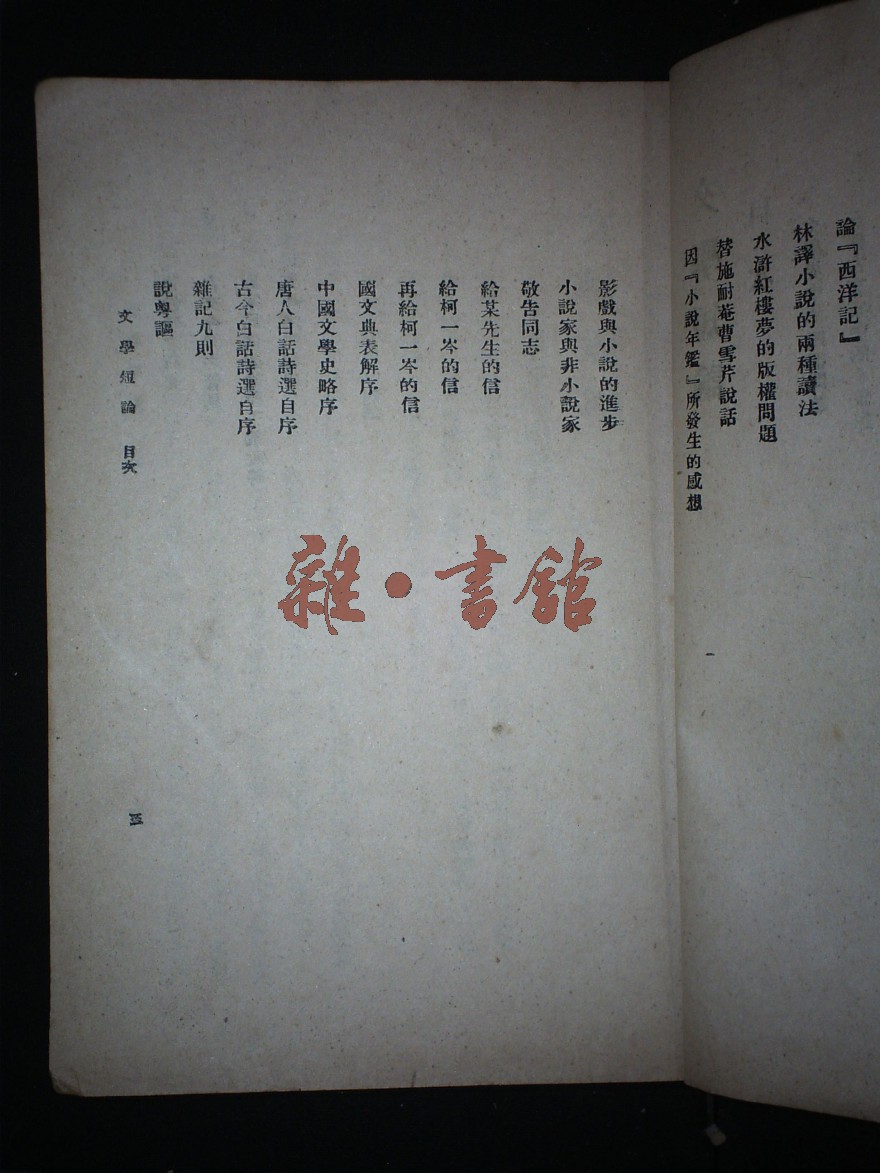 論『西洋記』
林譯小說的兩種讀法
水滸紅樓夢的版權問題
替施耐菴曹雪芹說話
因『小說年鑑』所發生的感想
影戲與小說的進步
小說家與非小說家
敬告同志
給某先生的信
給柯一岑的信
再給柯一岑的信
國文典表解序
中國文學史略序
唐人白話詩選自序
古今白話詩選自序
雜記九則
說粵謳
文學短論 目次
三
雜·書館